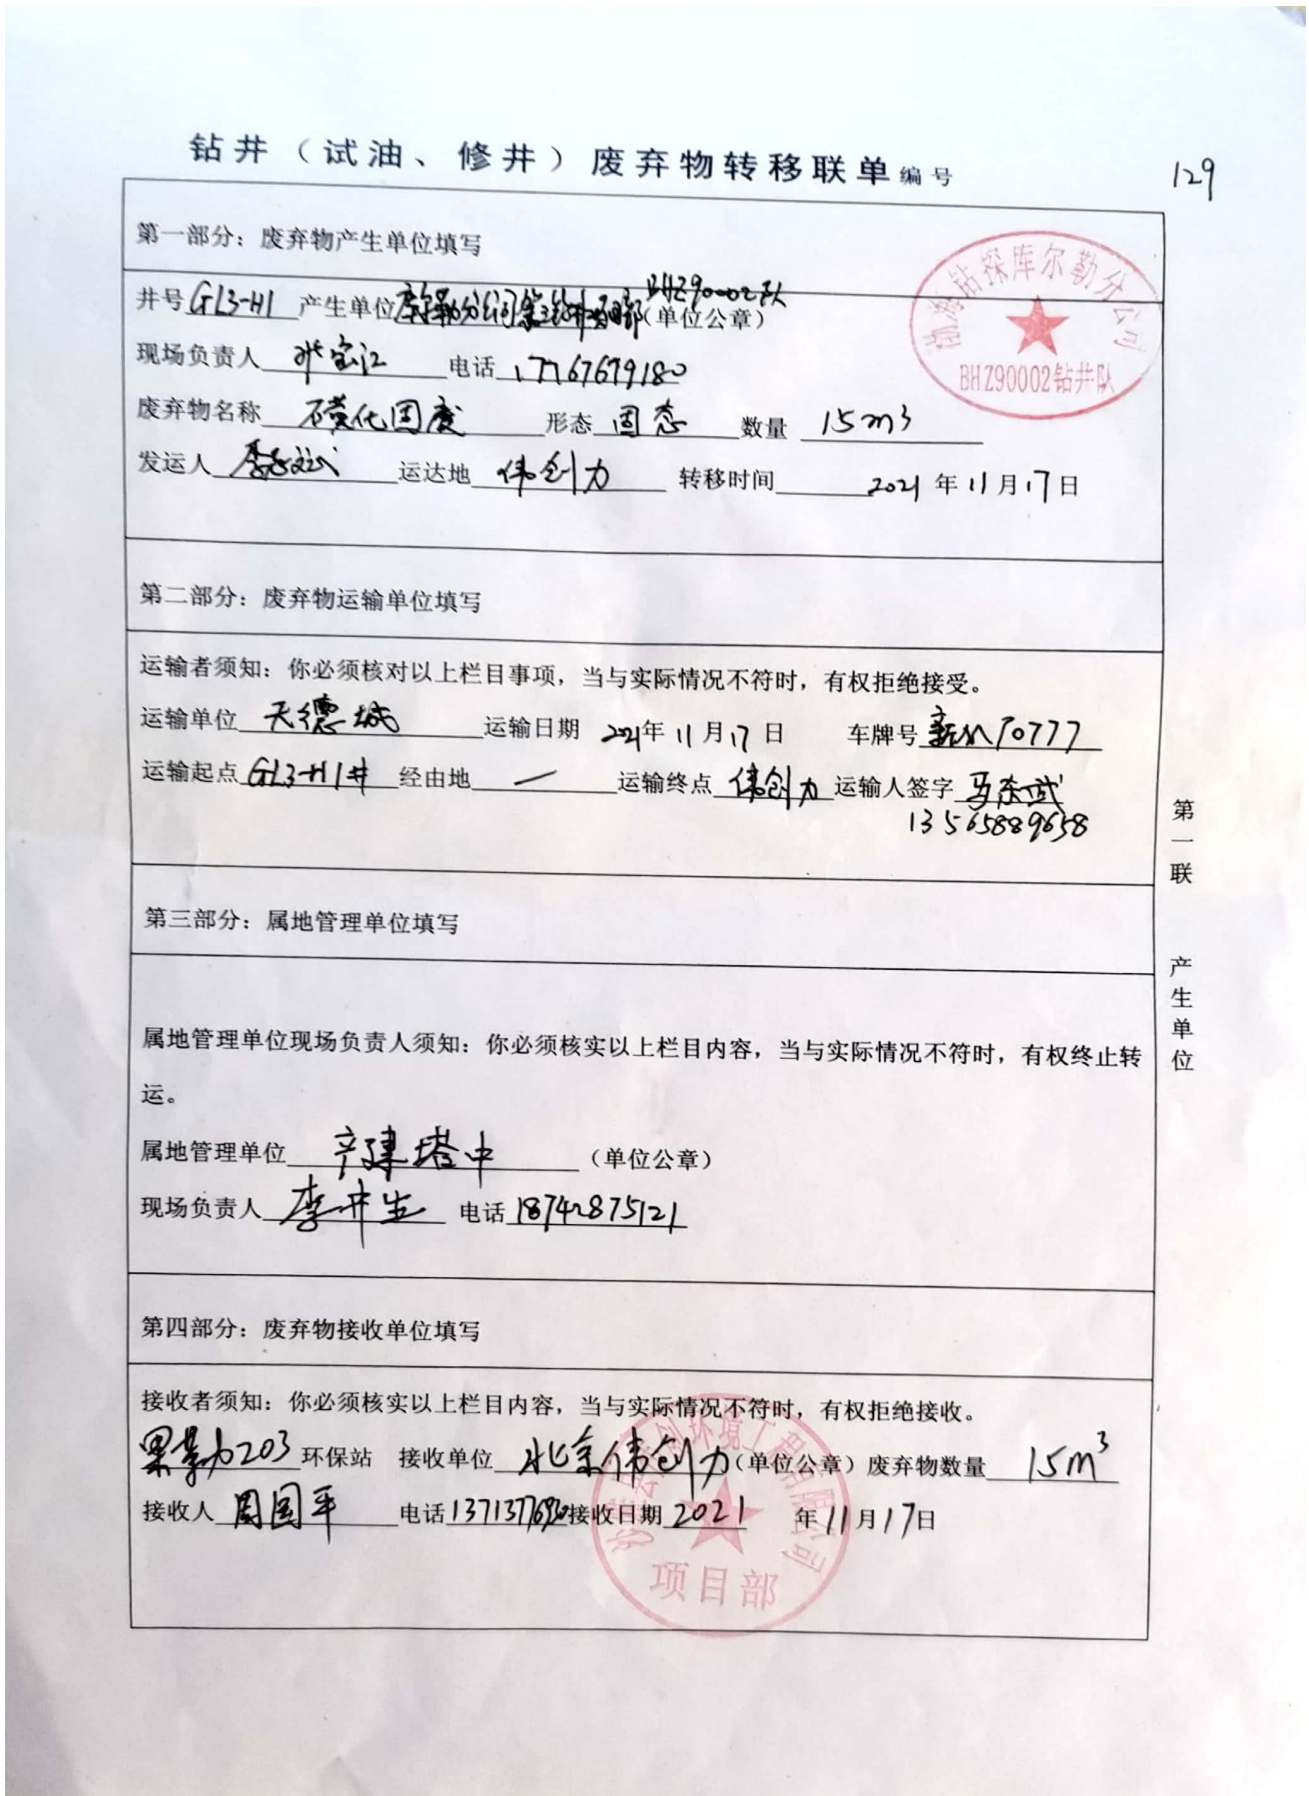 钻井（试油、修井）废弃物转移联单编号 129
第一部分：废弃物产生单位填写
渤海钻探库尔勒分公司
BHZ90002钻井队
BHZ90002队
井号GL3-H1 产生单位库尔勒分公司第三钻井项目部（单位公章）
现场负责人 张宝江 电话 17767679180
废弃物名称 磺化固废 形态 固态 数量 15m³
发运人 运达地 伟创力 转移时间 2021年11月17日
第二部分：废弃物运输单位填写
运输者须知：你必须核对以上栏目事项，当与实际情况不符时，有权拒绝接受。
运输单位 天德城 运输日期 2021年11月17日 车牌号 70777
运输起点 GL3-H1井 经由地 — 运输终点 伟创力 运输人签字 马东武
13565889658
第三部分：属地管理单位填写
属地管理单位现场负责人须知：你必须核实以上栏目内容，当与实际情况不符时，有权终止转
运。
属地管理单位 产建塔中 （单位公章）
现场负责人 李井生 电话 18742875121
第四部分：废弃物接收单位填写
接收者须知：你必须核实以上栏目内容，当与实际情况不符时，有权拒绝接收。
果勒203环保站 接收单位 北京伟创力（单位公章）废弃物数量 15m³
接收人 周国平 电话 接收日期 2021年11月17日
环境工程有限公司
项目部
第一联 产生单位